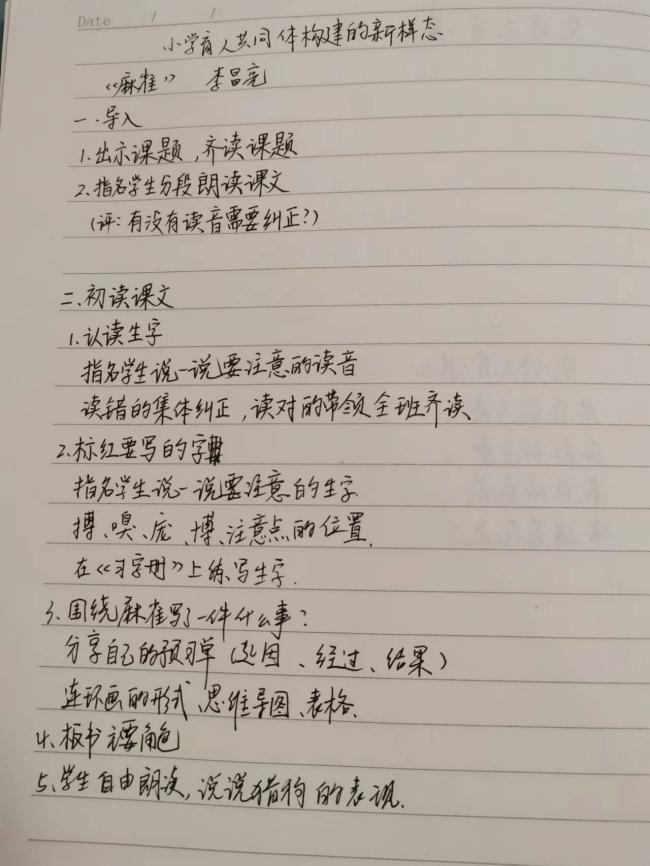 Date / /
小学育人共同体构建的新样态
《麻雀》 李昌亮
一、导入
1.出示课题,齐读课题
2.指名学生分段朗读课文
(评:有没有读音需要纠正?)
二.初读课文
1.认读生字
指名学生说一说要注意的读音
读错的集体纠正,读对的带领全班齐读
2.标红要写的字
指名学生说一说要注意的生字
搏、嗅、庞、博、注意点的位置.
在《习字册》上练写生字.
3.围绕麻雀写了一件什么事?
分享自己的预习单(起因、经过、结果)
连环画的形式、思维导图、表格.
4.板书主要角色
5.学生自由朗读,说说猎狗的表现.